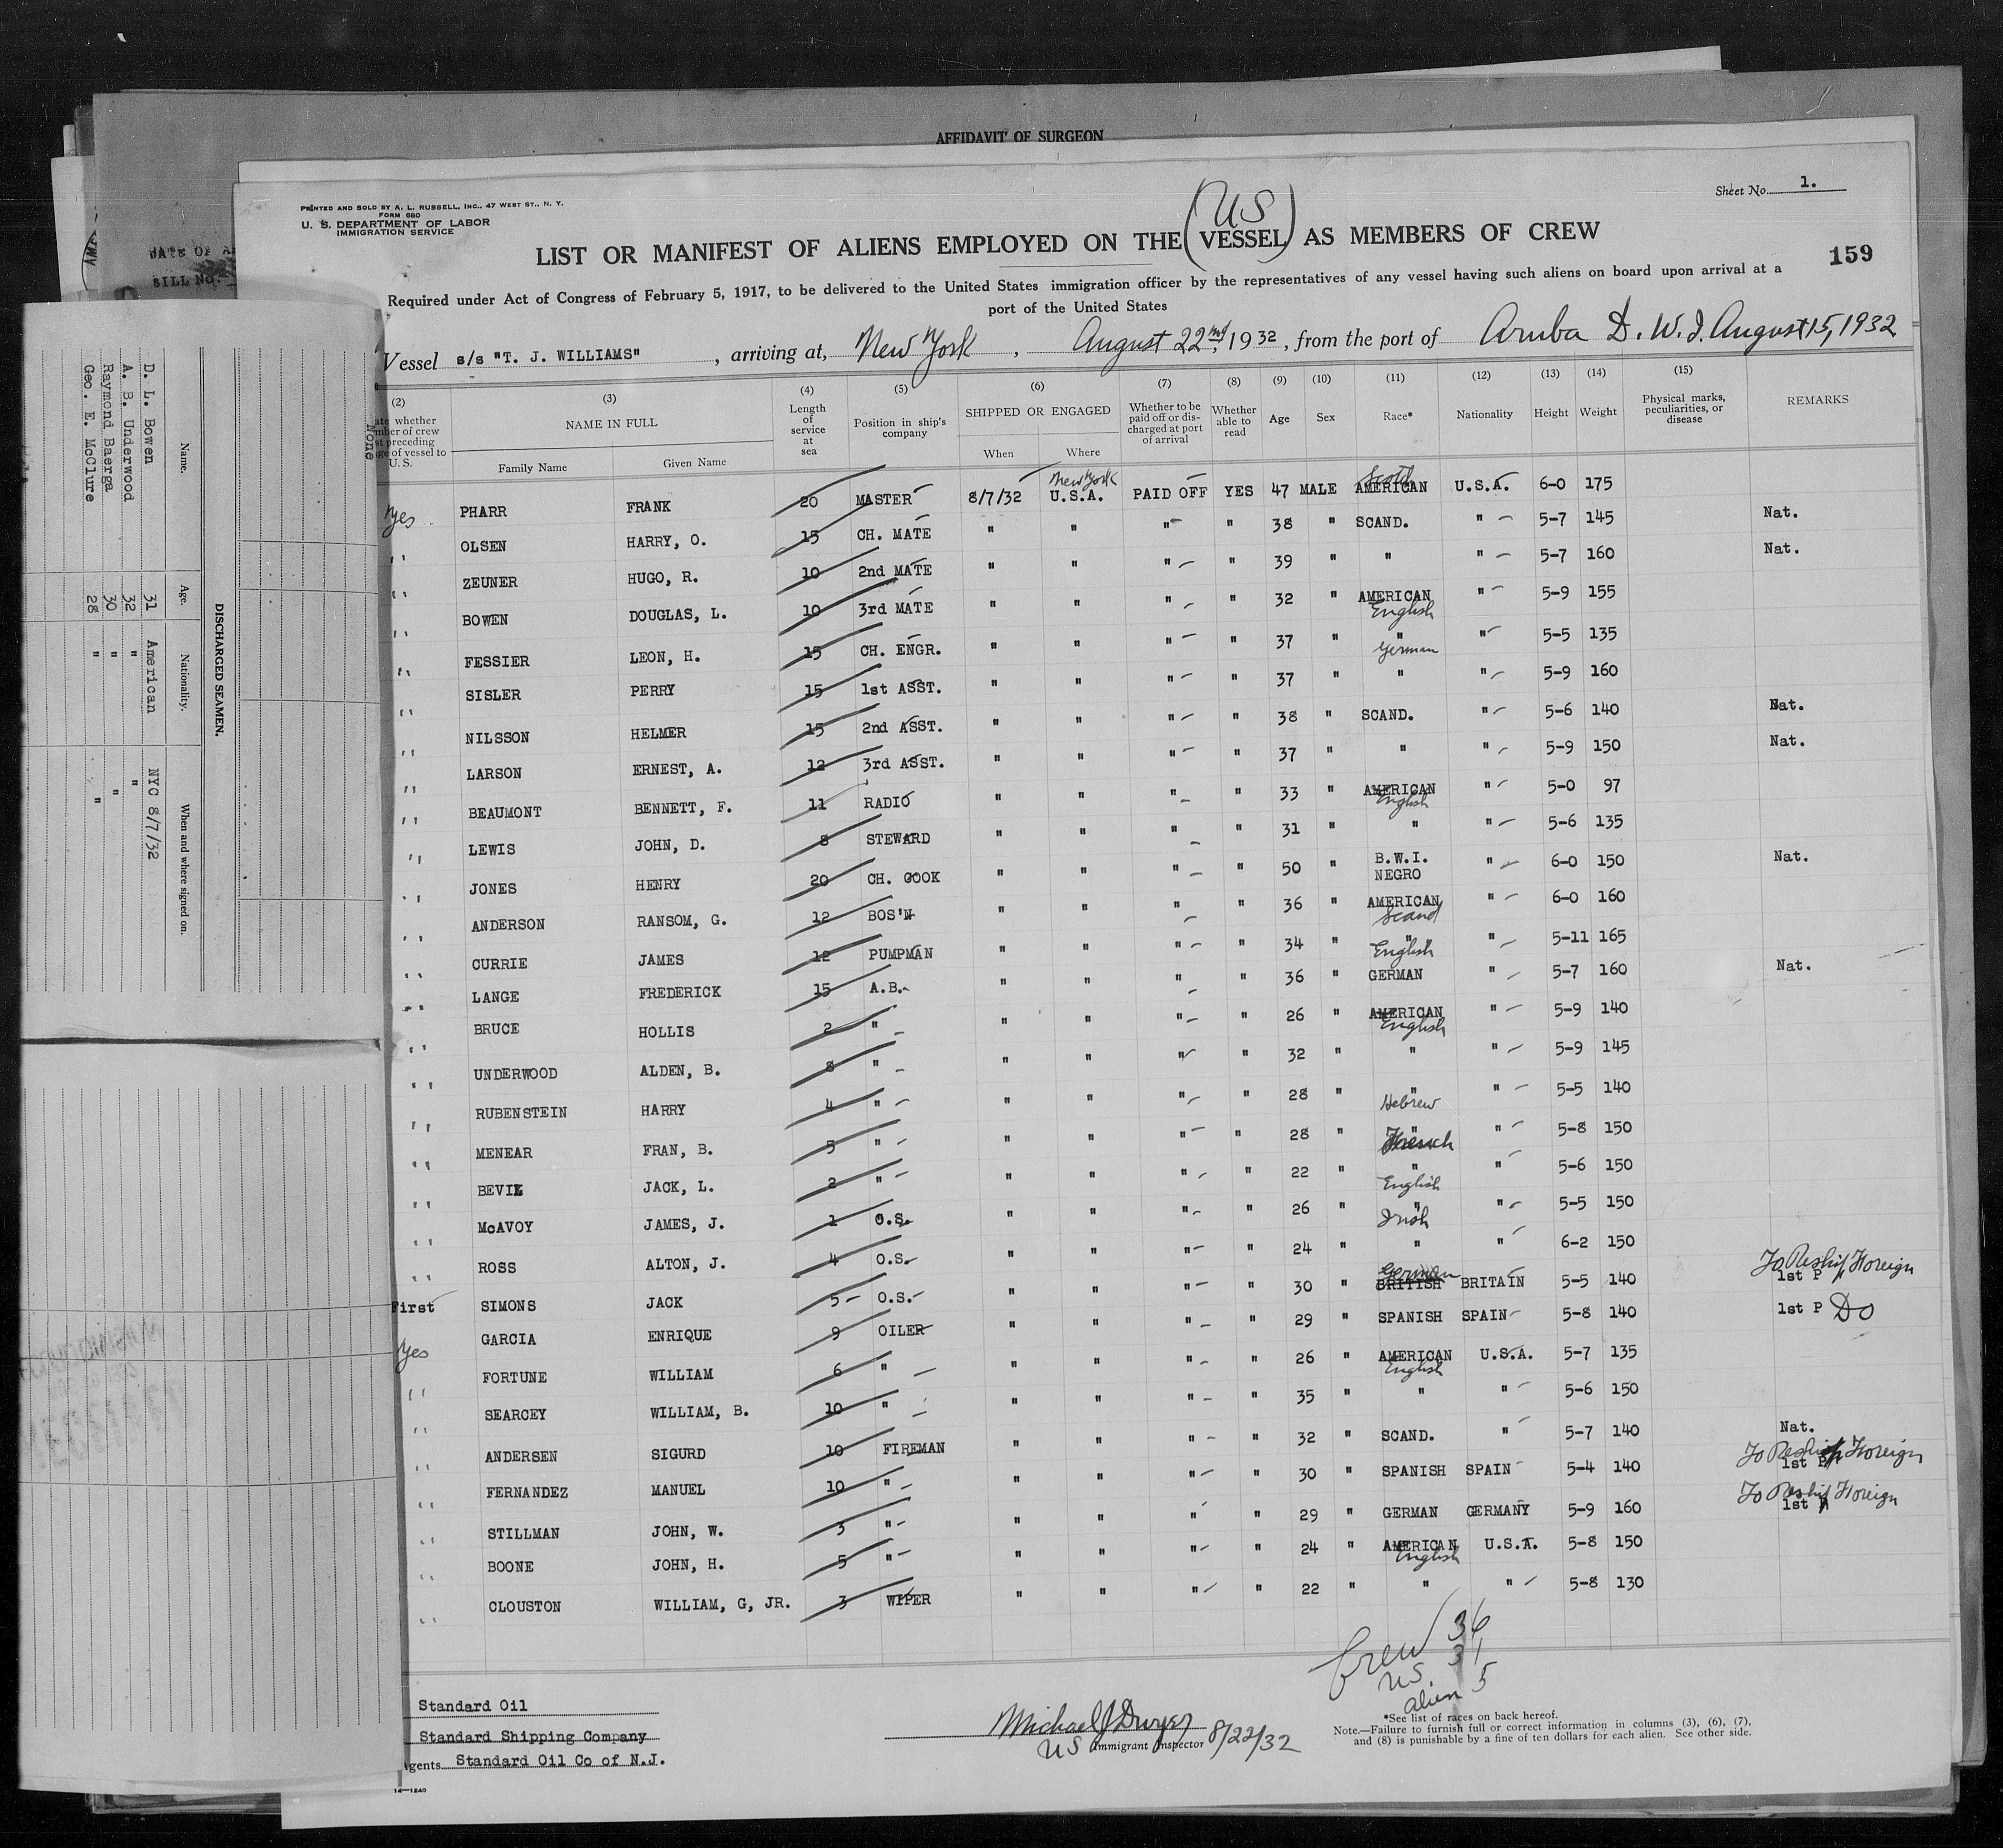 AFFIDAVIT OF SURGEON
Sheet No. 1.
PRINTED AND SOLD BY A. L. RUSSELL, INC., 47 WEST ST., N. Y.
FORM 680
U. S. DEPARTMENT OF LABOR
IMMIGRATION SERVICE
US
LIST OR MANIFEST OF ALIENS EMPLOYED ON THE (VESSEL) AS MEMBERS OF CREW
159
Required under Act of Congress of February 5, 1917, to be delivered to the United States immigration officer by the representatives of any vessel having such aliens on board upon arrival at a
port of the United States
Vessel s/s "T. J. WILLIAMS", arriving at, New York, August 22nd, 1932, from the port of Aruba D. W. I. August 15, 1932
(2) (3) (4) (5) (6) (7) (8) (9) (10) (11) (12) (13) (14) (15)
whether member of crew preceding of vessel to U.S.
NAME IN FULL
Family Name Given Name
Length of service at sea
Position in ship's company
SHIPPED OR ENGAGED
When Where
Whether to be paid off or discharged at port of arrival
Whether able to read
Age Sex Race* Nationality Height Weight
Physical marks, peculiarities, or disease
REMARKS
Yes PHARR FRANK 20 MASTER 8/7/32 New York U.S.A. PAID OFF YES 47 MALE AMERICAN Scotch U.S.A. 6-0 175
" OLSEN HARRY, O. 15 CH. MATE " " " " 38 " SCAND. " 5-7 145 Nat.
" ZEUNER HUGO, R. 10 2nd MATE " " " " 39 " " " 5-7 160 Nat.
" BOWEN DOUGLAS, L. 10 3rd MATE " " " " 32 " AMERICAN English " 5-9 155
" FESSIER LEON, H. 15 CH. ENGR. " " " " 37 " " German " 5-5 135
" SISLER PERRY 15 1st ASST. " " " " 37 " " " 5-9 160
" NILSSON HELMER 15 2nd ASST. " " " " 38 " SCAND. " 5-6 140 Nat.
" LARSON ERNEST, A. 12 3rd ASST. " " " " 37 " " " 5-9 150 Nat.
" BEAUMONT BENNETT, F. 11 RADIO " " " " 33 " AMERICAN English " 5-0 97
" LEWIS JOHN, D. 8 STEWARD " " " " 31 " " " 5-6 135
" JONES HENRY 20 CH. COOK " " " " 50 " B.W.I. NEGRO " 6-0 150 Nat.
" ANDERSON RANSOM, G. 12 BOS'N " " " " 36 " AMERICAN Scand " 6-0 160
" CURRIE JAMES 12 PUMPMAN " " " " 34 " " English " 5-11 165
" LANGE FREDERICK 15 A.B. " " " " 36 " GERMAN " 5-7 160 Nat.
" BRUCE HOLLIS 2 " " " " " 26 " AMERICAN English " 5-9 140
" UNDERWOOD ALDEN, B. 8 " " " " " 32 " " " 5-9 145
" RUBENSTEIN HARRY 4 " " " " " 28 " " Hebrew " 5-5 140
" MENEAR FRAN, B. 5 " " " " " 28 " " French " 5-8 150
" BEVIL JACK, L. 2 " " " " " 22 " " English " 5-6 150
" McAVOY JAMES, J. 1 O.S. " " " " 26 " " Irish " 5-5 150
" ROSS ALTON, J. 4 O.S. " " " " 24 " " " 6-2 150
First SIMONS JACK 5 O.S. " " " " 30 " BRITISH German BRITAIN 5-5 140 1st P To Reship Foreign
GARCIA ENRIQUE 9 OILER " " " " 29 " SPANISH SPAIN 5-8 140 1st P Do
Yes FORTUNE WILLIAM 6 " " " " " 26 " AMERICAN English U.S.A. 5-7 135
" SEARCEY WILLIAM, B. 10 " " " " " 35 " " " 5-6 150
" ANDERSEN SIGURD 10 FIREMAN " " " " 32 " SCAND. " 5-7 140 Nat.
" FERNANDEZ MANUEL 10 " " " " " 30 " SPANISH SPAIN 5-4 140 1st P To Reship Foreign
" STILLMAN JOHN, W. 3 " " " " " 29 " GERMAN GERMANY 5-9 160 1st P To Reship Foreign
" BOONE JOHN, H. 5 " " " " " 24 " AMERICAN English U.S.A. 5-8 150
" CLOUSTON WILLIAM, G, JR. 3 WIPER " " " " 22 " " " 5-8 130
Crew 36
US 31
alien 5
Standard Oil
Standard Shipping Company
Agents Standard Oil Co of N.J.
Michael J Dwyer
US Immigrant Inspector 8/22/32
*See list of races on back hereof.
Note.—Failure to furnish full or correct information in columns (3), (6), (7),
and (8) is punishable by a fine of ten dollars for each alien. See other side.
14—1240
DISCHARGED SEAMEN.
Name. Age. Nationality. When and where signed on.
D. L. Bowen 31 American NYC 8/7/32
A. B. Underwood 32 " "
Raymond Baerga 30 " "
Geo. E. McClure 28 " "
None
DATE OF
BILL No.